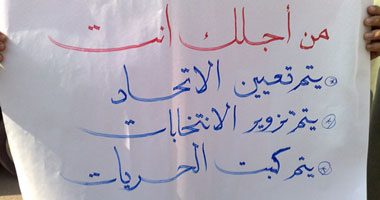 من أجلك انت
يتم تعيين الاتحاد
يتم تزوير الانتخابات
يتم كبت الحريات